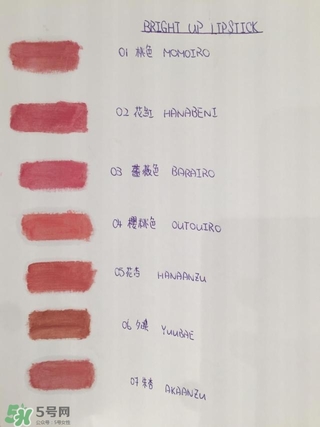 BRIGHT UP LIPSTICK
01 桃色 MOMOIRO
02 花红 HANABENI
03 蔷薇色 BARAIRO
04 樱桃色 OUTOUIRO
05 花杏 HANAANZU
06 夕 YUUBAE
07 朱杏 AKAANZU
5号网
公众号：5号女性